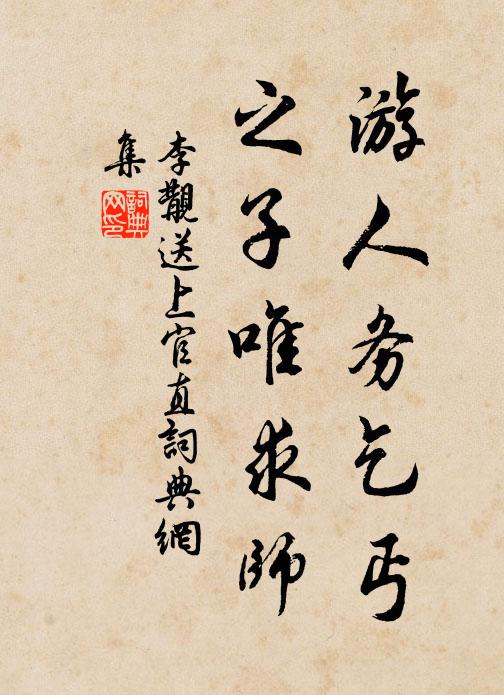 游人务乞丐
之子唯求師
李覯送上官直詞典網
集
詞典
网印